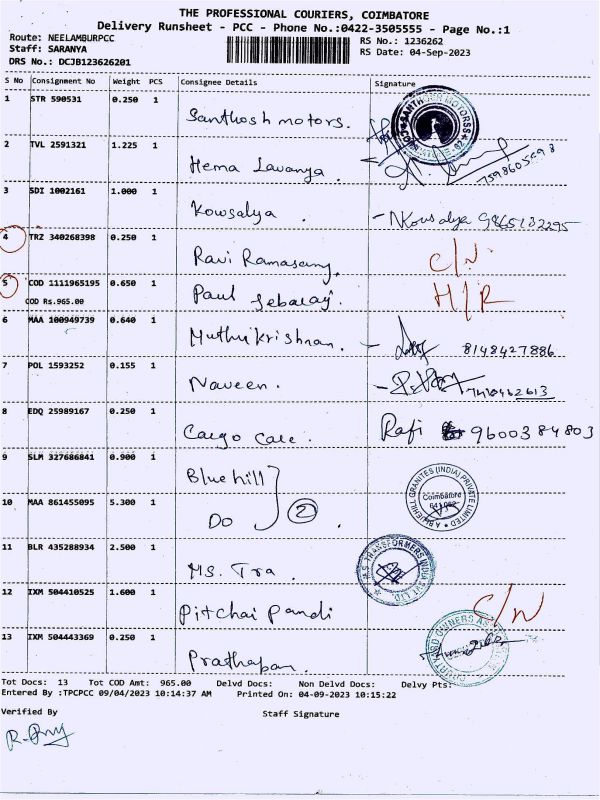 THE PROFESSIONAL COURIERS, COIMBATORE
Delivery Runsheet - PCC - Phone No.:0422-3505555 - Page No.:1
Route: NEELAMBURPCC
RS No.: 1236262
Staff: SARANYA
RS Date: 04-Sep-2023
DRS No.: DCJB123626201
S No Consignment No Weight PCS Consignee Details Signature
1 STR 590531 0.250 1 Santhosh motors.
2 TVL 2591321 1.225 1 Hema Lavanya. 7598605598
3 SDI 1002161 1.000 1 Kowsalya. - N Kowsalya 9865132295
4 TRZ 340268398 0.250 1 Ravi Ramasamy. C/N
5 COD 1111965195 0.650 1 Paul Sebaraj. H/R
COD Rs.965.00
6 MAA 100949739 0.640 1 Muthukrishnan. - 8148427886
7 POL 1593252 0.155 1 Naveen.
8 EDQ 25989167 0.250 1 Cargo Care. Rafi 9600384803
9 SLM 327686841 0.900 1 Bluehill
BLUEHILL GRANITES (INDIA) PRIVATE LIMITED
Coimbatore
10 MAA 861455095 5.300 1 Do 2.
11 BLR 435288934 2.500 1 MS. Tra.
TRANSFORMERS INDIA PVT LTD.
12 IXM 504410525 1.600 1 Pitchai Pandi C/N
13 IXM 504443369 0.250 1 Prathaban.
Tot Docs: 13 Tot COD Amt: 965.00 Delvd Docs: Non Delvd Docs: Delvy Pts:
Entered By :TPCPCC 09/04/2023 10:14:37 AM Printed On: 04-09-2023 10:15:22
Verified By Staff Signature